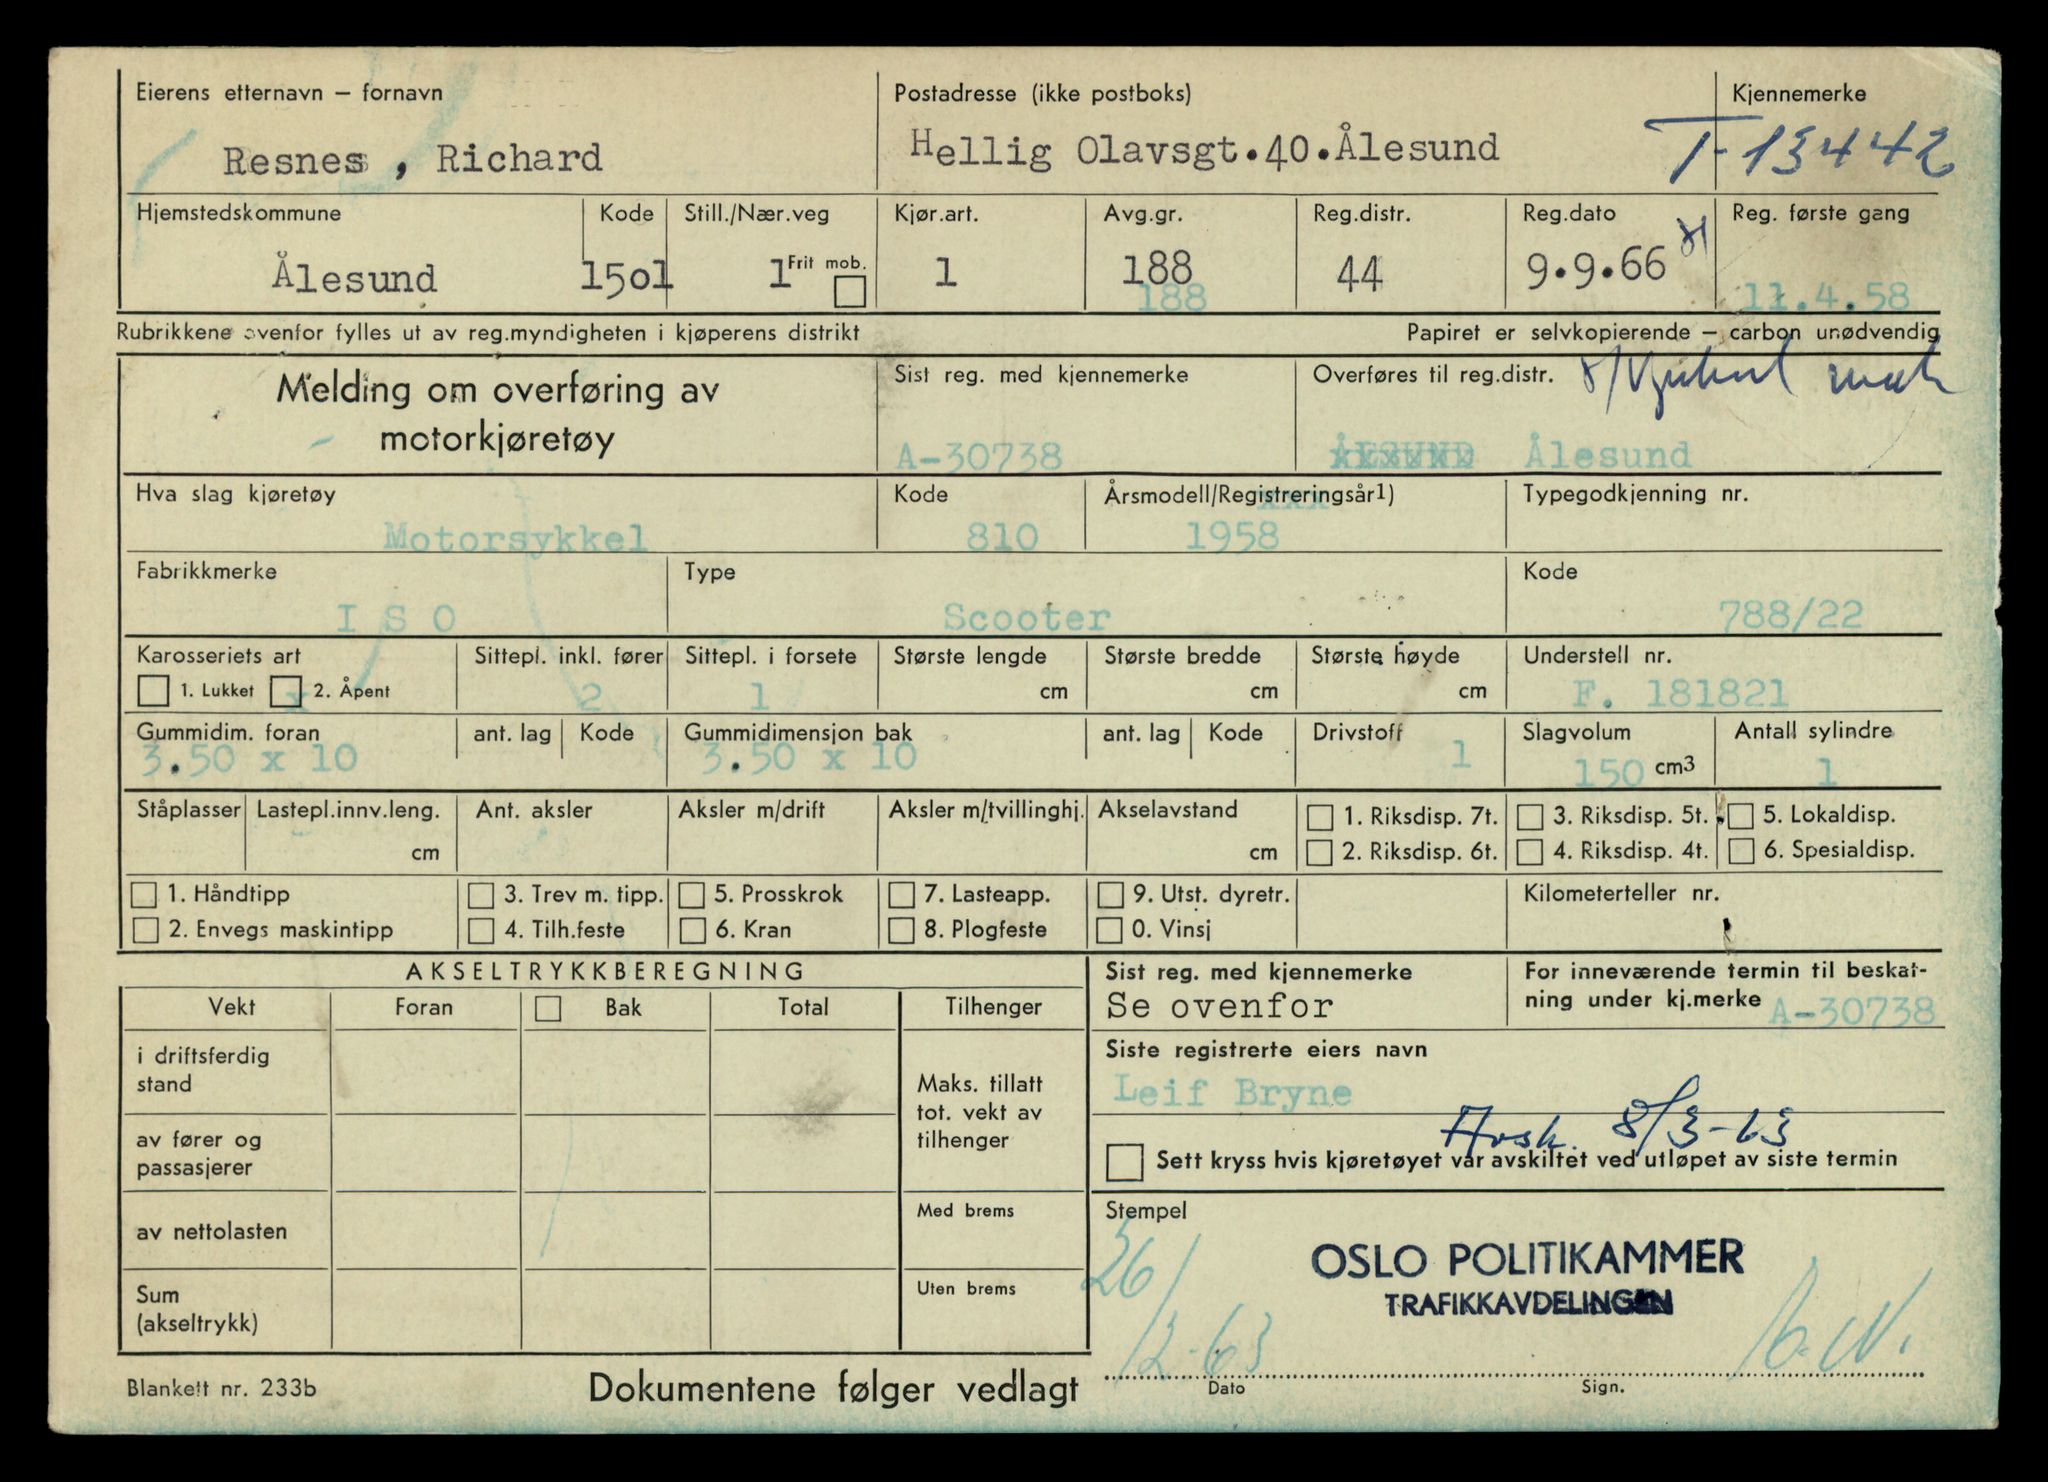 Eierens etternavn – fornavn
Postadresse (ikke postboks)
Kjennemerke
Resnes , Richard
Hellig Olavsgt.40.Ålesund
T-13442
Hjemstedskommune
Kode
Still./Nær.veg
Kjør.art.
Avg.gr.
Reg.distr.
Reg.dato
Reg. første gang
Ålesund
1501
1
Frit mob.
1
188
188
44
9.9.66
11.4.58
Rubrikkene ovenfor fylles ut av reg.myndigheten i kjøperens distrikt
Papiret er selvkopierende – carbon unødvendig
Melding om overføring av
motorkjøretøy
Sist reg. med kjennemerke
Overføres til reg.distr.
A-30738
Ålesund
Hva slag kjøretøy
Kode
Årsmodell/Registreringsår1)
Typegodkjenning nr.
Motorsykkel
810
1958
Fabrikkmerke
Type
Kode
I S O
Scooter
788/22
Karosseriets art
Sittepl. inkl. fører
Sittepl. i forsete
Største lengde
Største bredde
Største høyde
Understell nr.
1. Lukket
x
2. Åpent
2
1
cm
cm
cm
F. 181821
Gummidim. foran
ant. lag
Kode
Gummidimensjon bak
ant. lag
Kode
Drivstoff
Slagvolum
Antall sylindre
3.50 x 10
3.50 x 10
1
150 cm3
1
Ståplasser
Lastepl.innv.leng.
Ant. aksler
Aksler m/drift
Aksler m/tvillinghj.
Akselavstand
1. Riksdisp. 7t.
3. Riksdisp. 5t.
5. Lokaldisp.
cm
cm
2. Riksdisp. 6t.
4. Riksdisp. 4t.
6. Spesialdisp.
1. Håndtipp
3. Trev m. tipp.
5. Prosskrok
7. Lasteapp.
9. Utst. dyretr.
Kilometerteller nr.
2. Envegs maskintipp
4. Tilh.feste
6. Kran
8. Plogfeste
0. Vinsj
AKSELTRYKKBEREGNING
Vekt
Foran
Bak
Total
Tilhenger
i driftsferdig
stand
Maks. tillatt
tot. vekt av
tilhenger
av fører og
passasjerer
av nettolasten
Med brems
Sum
(akseltrykk)
Uten brems
Sist reg. med kjennemerke
Se ovenfor
For inneværende termin til beskat-
ning under kj.merke A-30738
Siste registrerte eiers navn
Leif Bryne
Avsk. 8/3-63
Sett kryss hvis kjøretøyet var avskiltet ved utløpet av siste termin
Stempel
OSLO POLITIKAMMER
TRAFIKKAVDELINGEN
26/
12-63
Dato
Sign.
Blankett nr. 233b
Dokumentene følger vedlagt